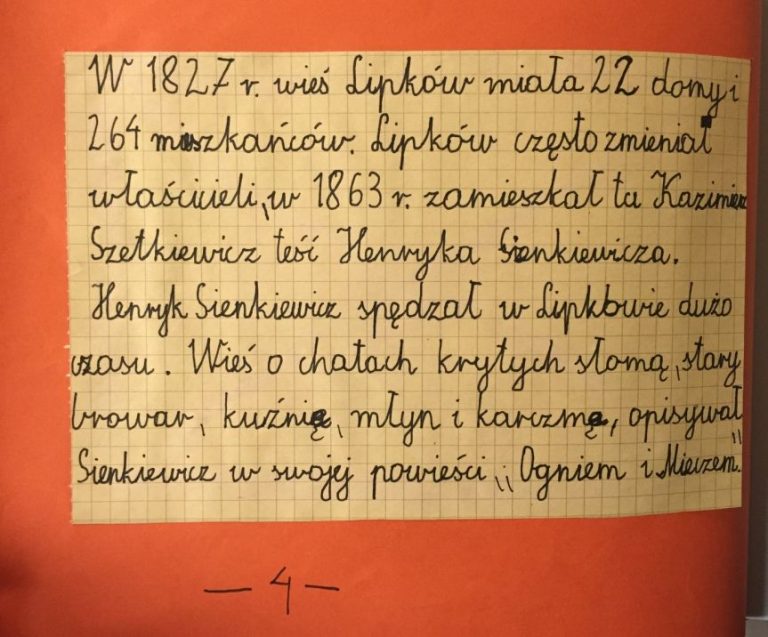 W 1827 r. wieś Lipków miała 22 domy i
264 mieszkańców. Lipków często zmieniał
właścicieli, w 1863 r. zamieszkał tu Kazimierz
Szetkiewicz teść Henryka Sienkiewicza.
Henryk Sienkiewicz spędzał w Lipkowie dużo
czasu. Wieś o chatach krytych słomą, stary
browar, kuźnię, młyn i karczmę, opisywał
Sienkiewicz w swojej powieści „Ogniem i Mieczem."
— 4 —